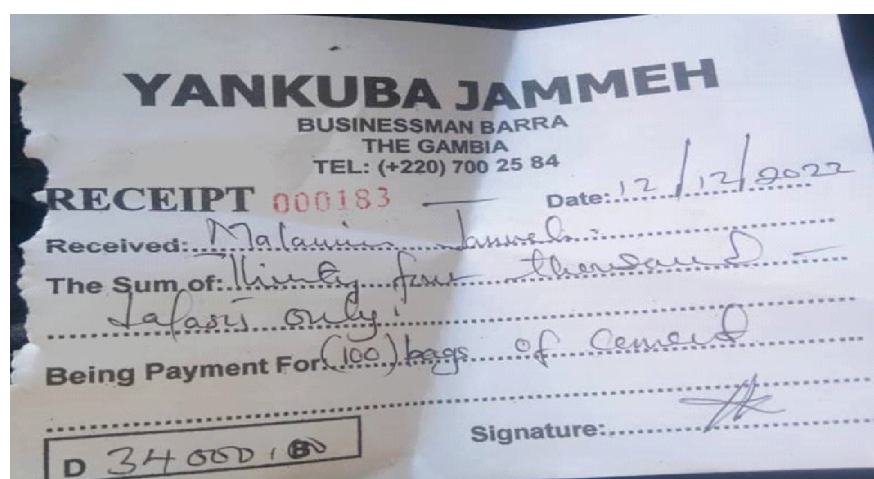 YANKUBA JAMMEH
BUSINESSMAN BARRA
THE GAMBIA
TEL: (+220) 700 25 84
RECEIPT 000183 Date: 12/12/2022
Received: Malamin Jammeh
The Sum of: Thirty four thousand
dalasis only!
Being Payment For: (100) bags of Cement
Signature:
D 34000,00